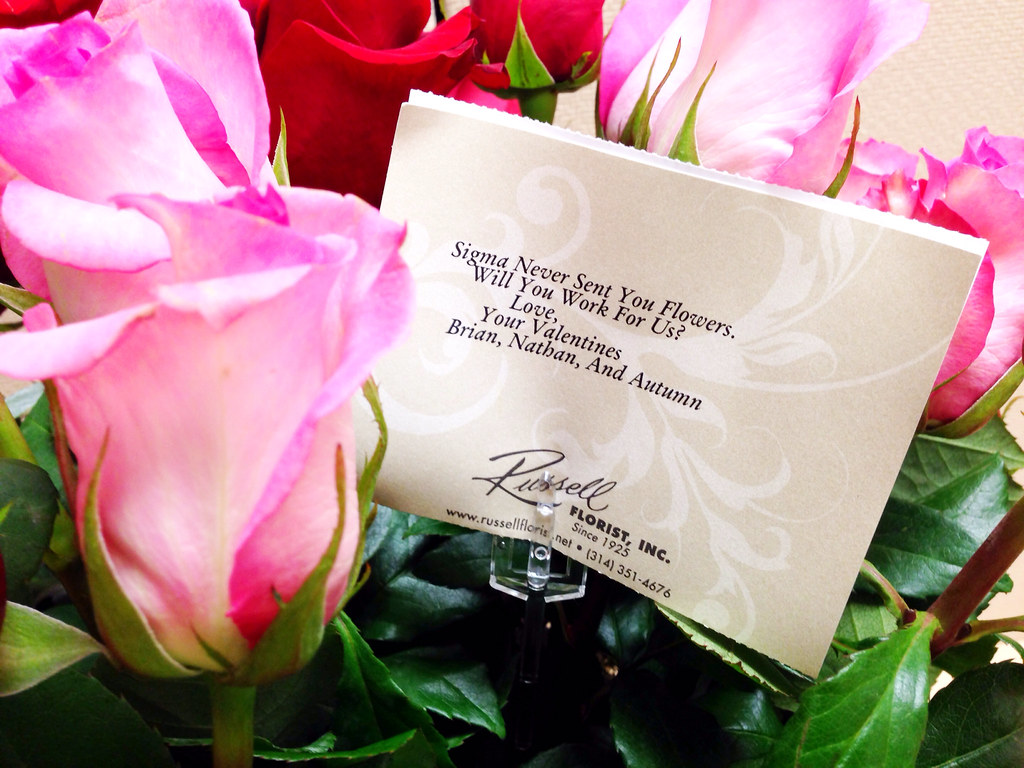 Sigma Never Sent You Flowers.
Will You Work For Us?
Love,
Your Valentines
Brian, Nathan, And Autumn
Russell
FLORIST, INC.
Since 1925
www.russellfloris .net • (314) 351-4676